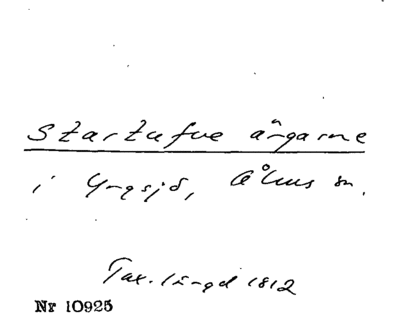 Startufve ängarne
i Yngsjö, Åhus sn.
Tax. längd 1812
Nr 10925